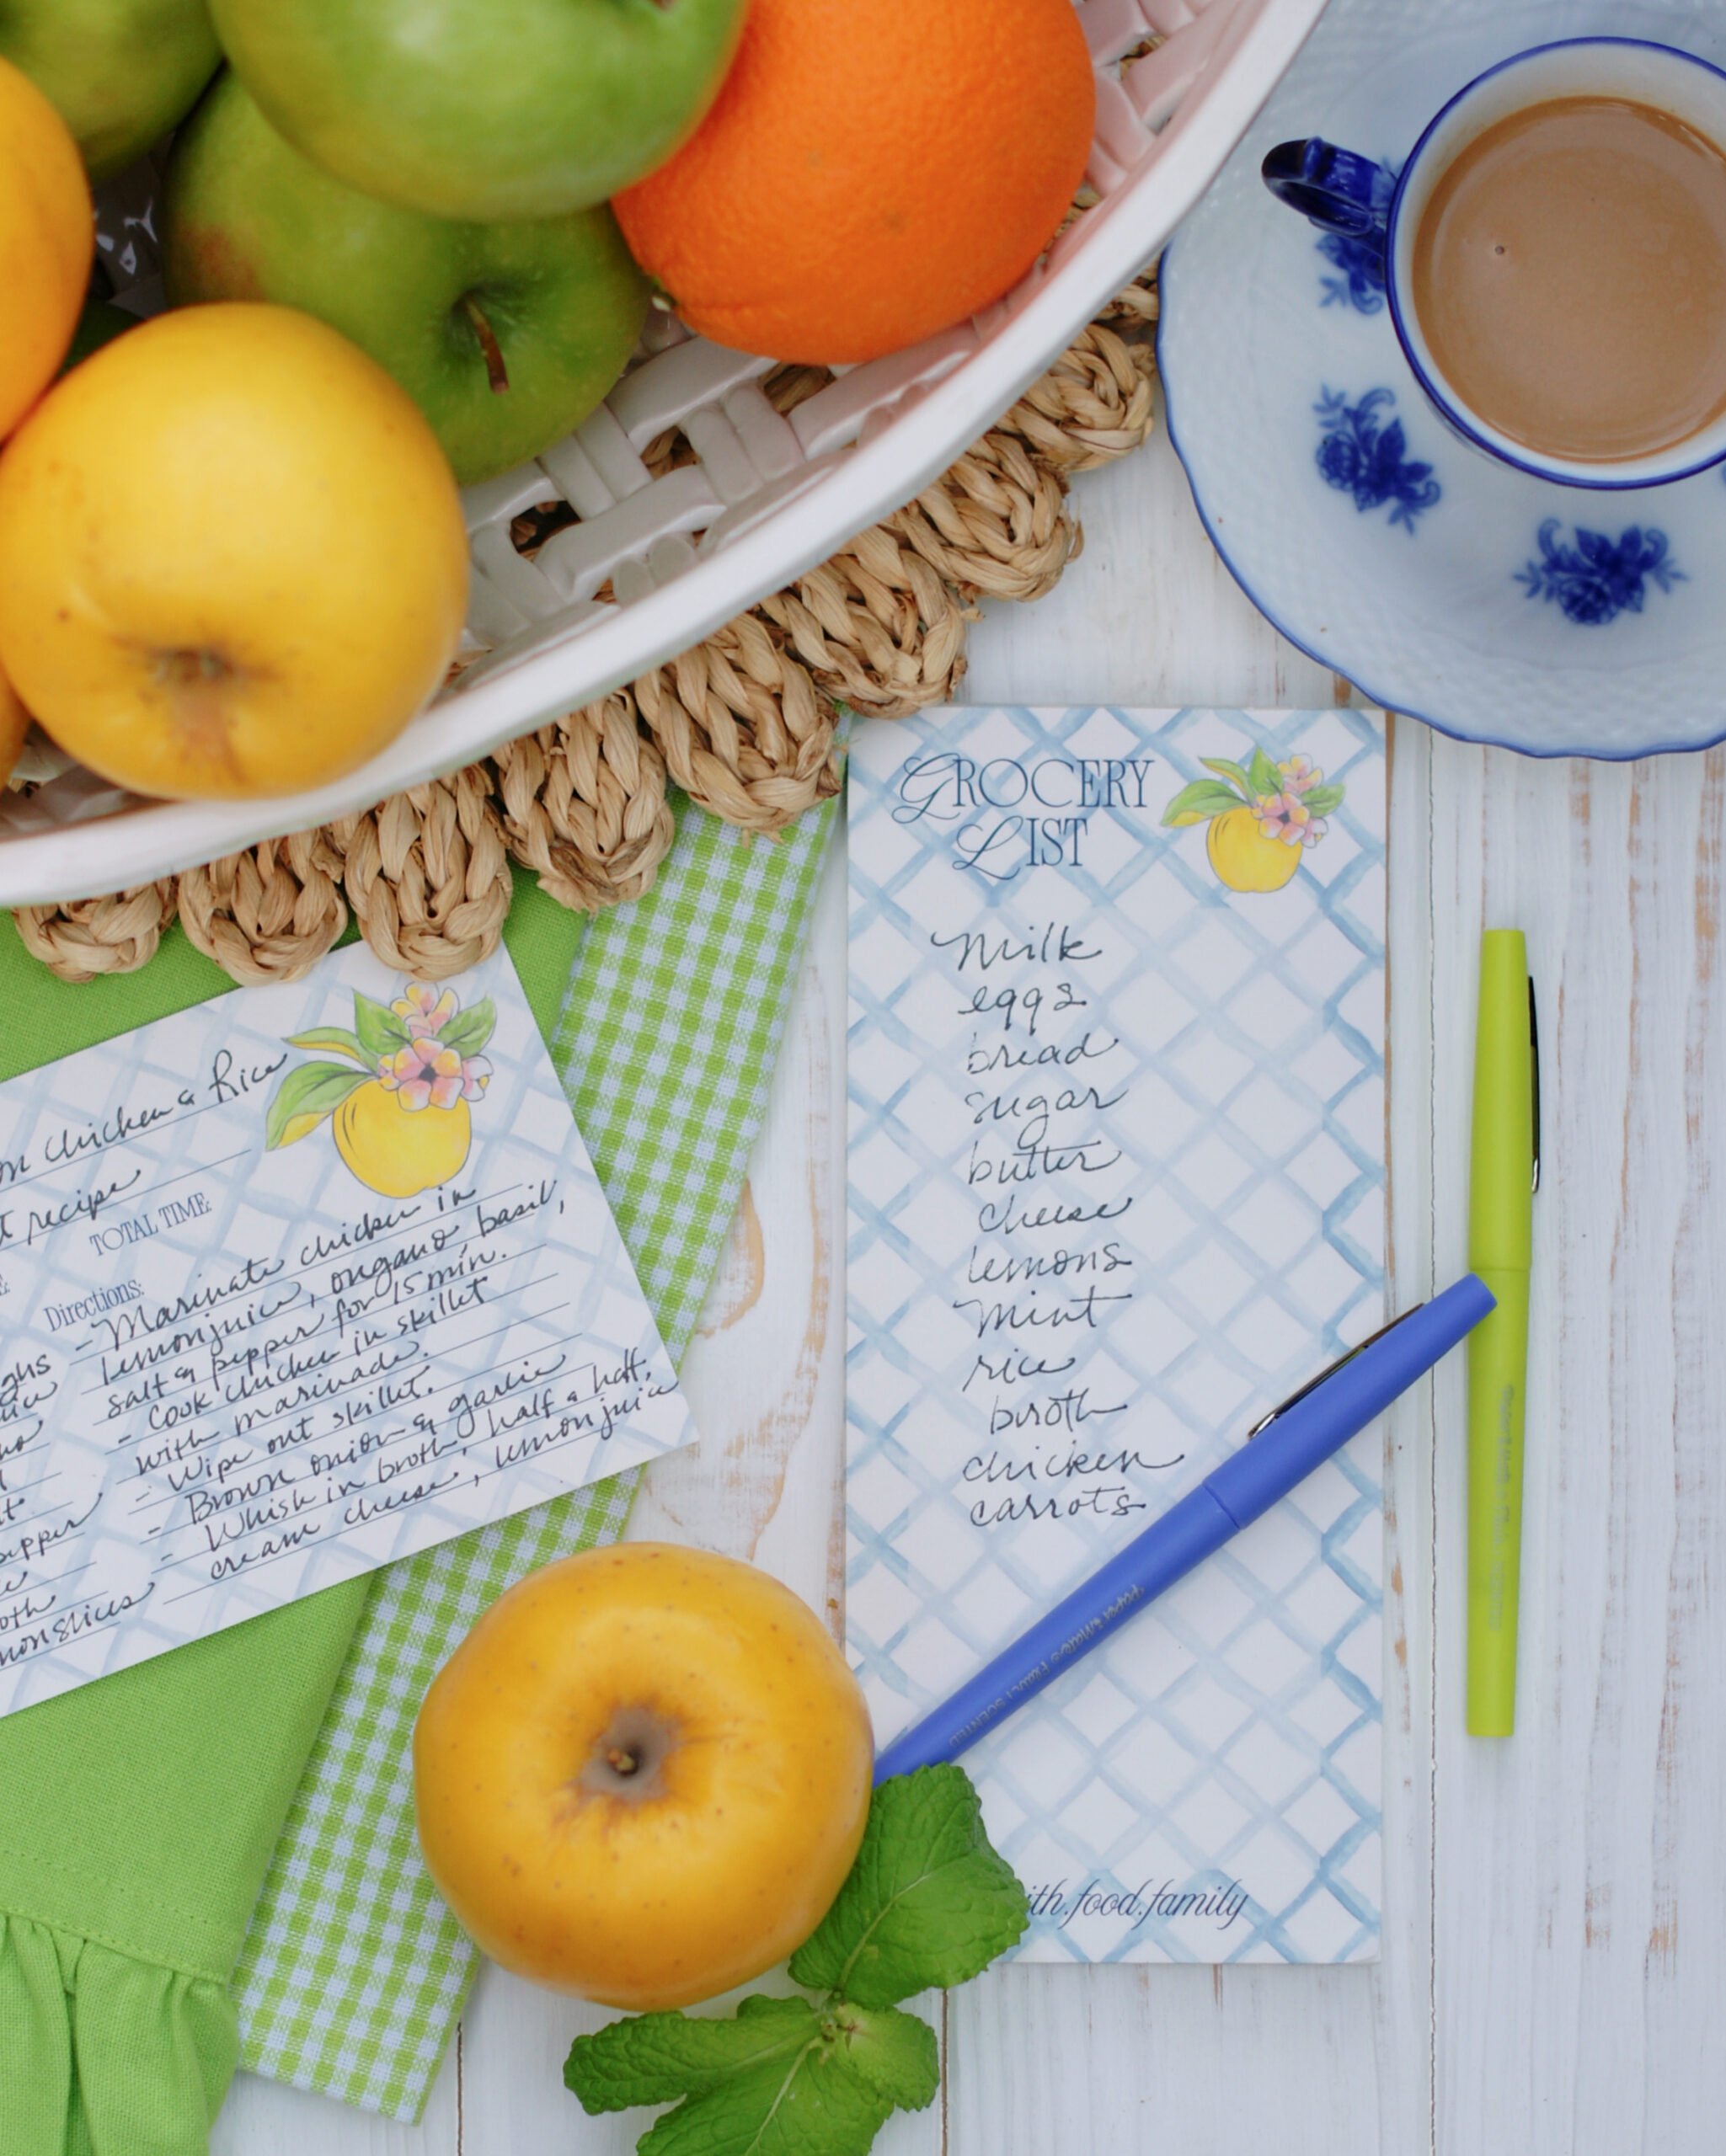 GROCERY
LIST
Milk
eggs
bread
sugar
butter
cheese
lemons
Mint
rice
broth
chicken
carrots
ith.food.family
Chicken & Rice
recipe
TOTAL TIME:
Directions:
- Marinate chicken in
lemon juice, oregano, basil,
salt & pepper for 15 min.
- Cook chicken in skillet
with marinade.
- Wipe out skillet.
- Brown onion & garlic
- Whisk in broth, half & half,
cream cheese, lemon juice
ighs
uice
no
epper
oth
mon slices
PAPER MATE FLAIR SCENTED